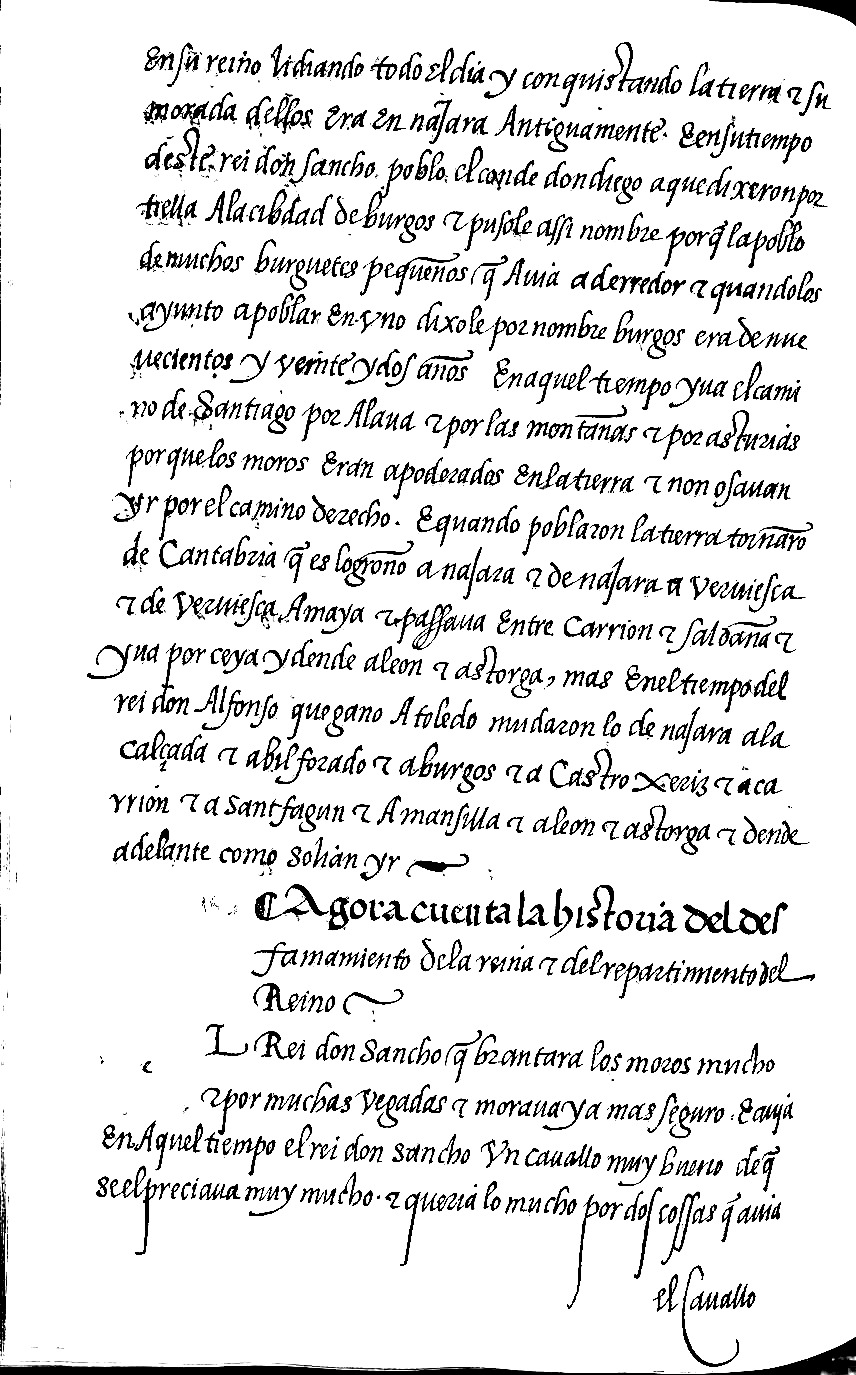 En su reino lidiando todo El dia y conquistando la tierra τ su
morada dellos Era En najara Antiguamente. E en su tiempo
deste rei don sancho poblo el conde don diego a que dixeron por
tiella A la cibdad de burgos τ pusole assi nombre porq̃ la poblo
de muchos burguetes pequen̄os q̃ Avia aderredor τ quando los
ayunto a poblar En vno dixole por nombre burgos era de nue
uecientos y veinte y dos an̄os En aquel tiempo yua el cami
no de Santiago por Alaua τ por las montan̄as τ por asturias
porque los moros Eran apoderados En la tierra τ non osauan
yr por el camino derecho. E quando poblaron la tierra tornarō
de Cantabria q̃ es logron̄o a najara τ de najara a Veruiesca
τ de Veruiesca Amaya τ passaua Entre Carrion τ saldan̄a τ
yua por ceya y dende a leon τ astorga, mas En el tiempo del
rei don Alfonso que gano A toledo mudaron lo de najara a la
calçada τ a bilforado τ a burgos τ a Castro xeriz τ a ca
rrion τ a sant fagun τ A mansilla τ a leon τ astorga τ dende
adelante como solian yr
¶ Agora cuenta la historia del des
famamiento de la reina τ del repartimiento del
Reino
L Rei don Sancho q̃ brantara los moros mucho
τ por muchas vegadas τ moraua ya mas seguro. E auja
En Aquel tiempo el rei don sancho Vn cauallo muy bueno de q̃
se el preciaua muy mucho. τ queria lo mucho por dos cossas q̃ auia
el Cauallo